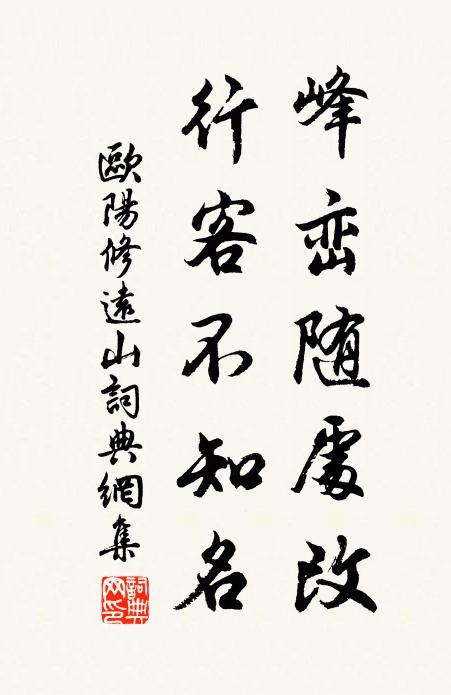 峰峦随處改
行客不知名
歐陽修遠山詞典網集
詞典网印